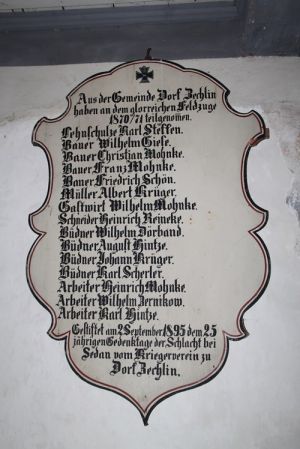 Aus der Gemeinde Dorf Zechlin
haben an dem glorreichen Feldzuge
1870/71 teilgenomen.
Lehnschulze Karl Steffen.
Bauer Wilhelm Giese.
Bauer Christian Mohnke.
Bauer Franz Mohnke.
Bauer Friedrich Schön.
Müller Albert Krüger.
Gastwirt Wilhelm Mohnke.
Schneider Heinrich Reineke.
Büdner Wilhelm Dörband.
Büdner August Hintze.
Büdner Johann Krüger.
Büdner Karl Scherler.
Arbeiter Heinrich Mohnke.
Arbeiter Wilhelm Jernikow.
Arbeiter Karl Hintze.
Gestiftet am 2 September 1895 dem 25
jährigen Gedenktage der Schlacht bei
Sedan vom Kriegerverein zu
Dorf Zechlin.